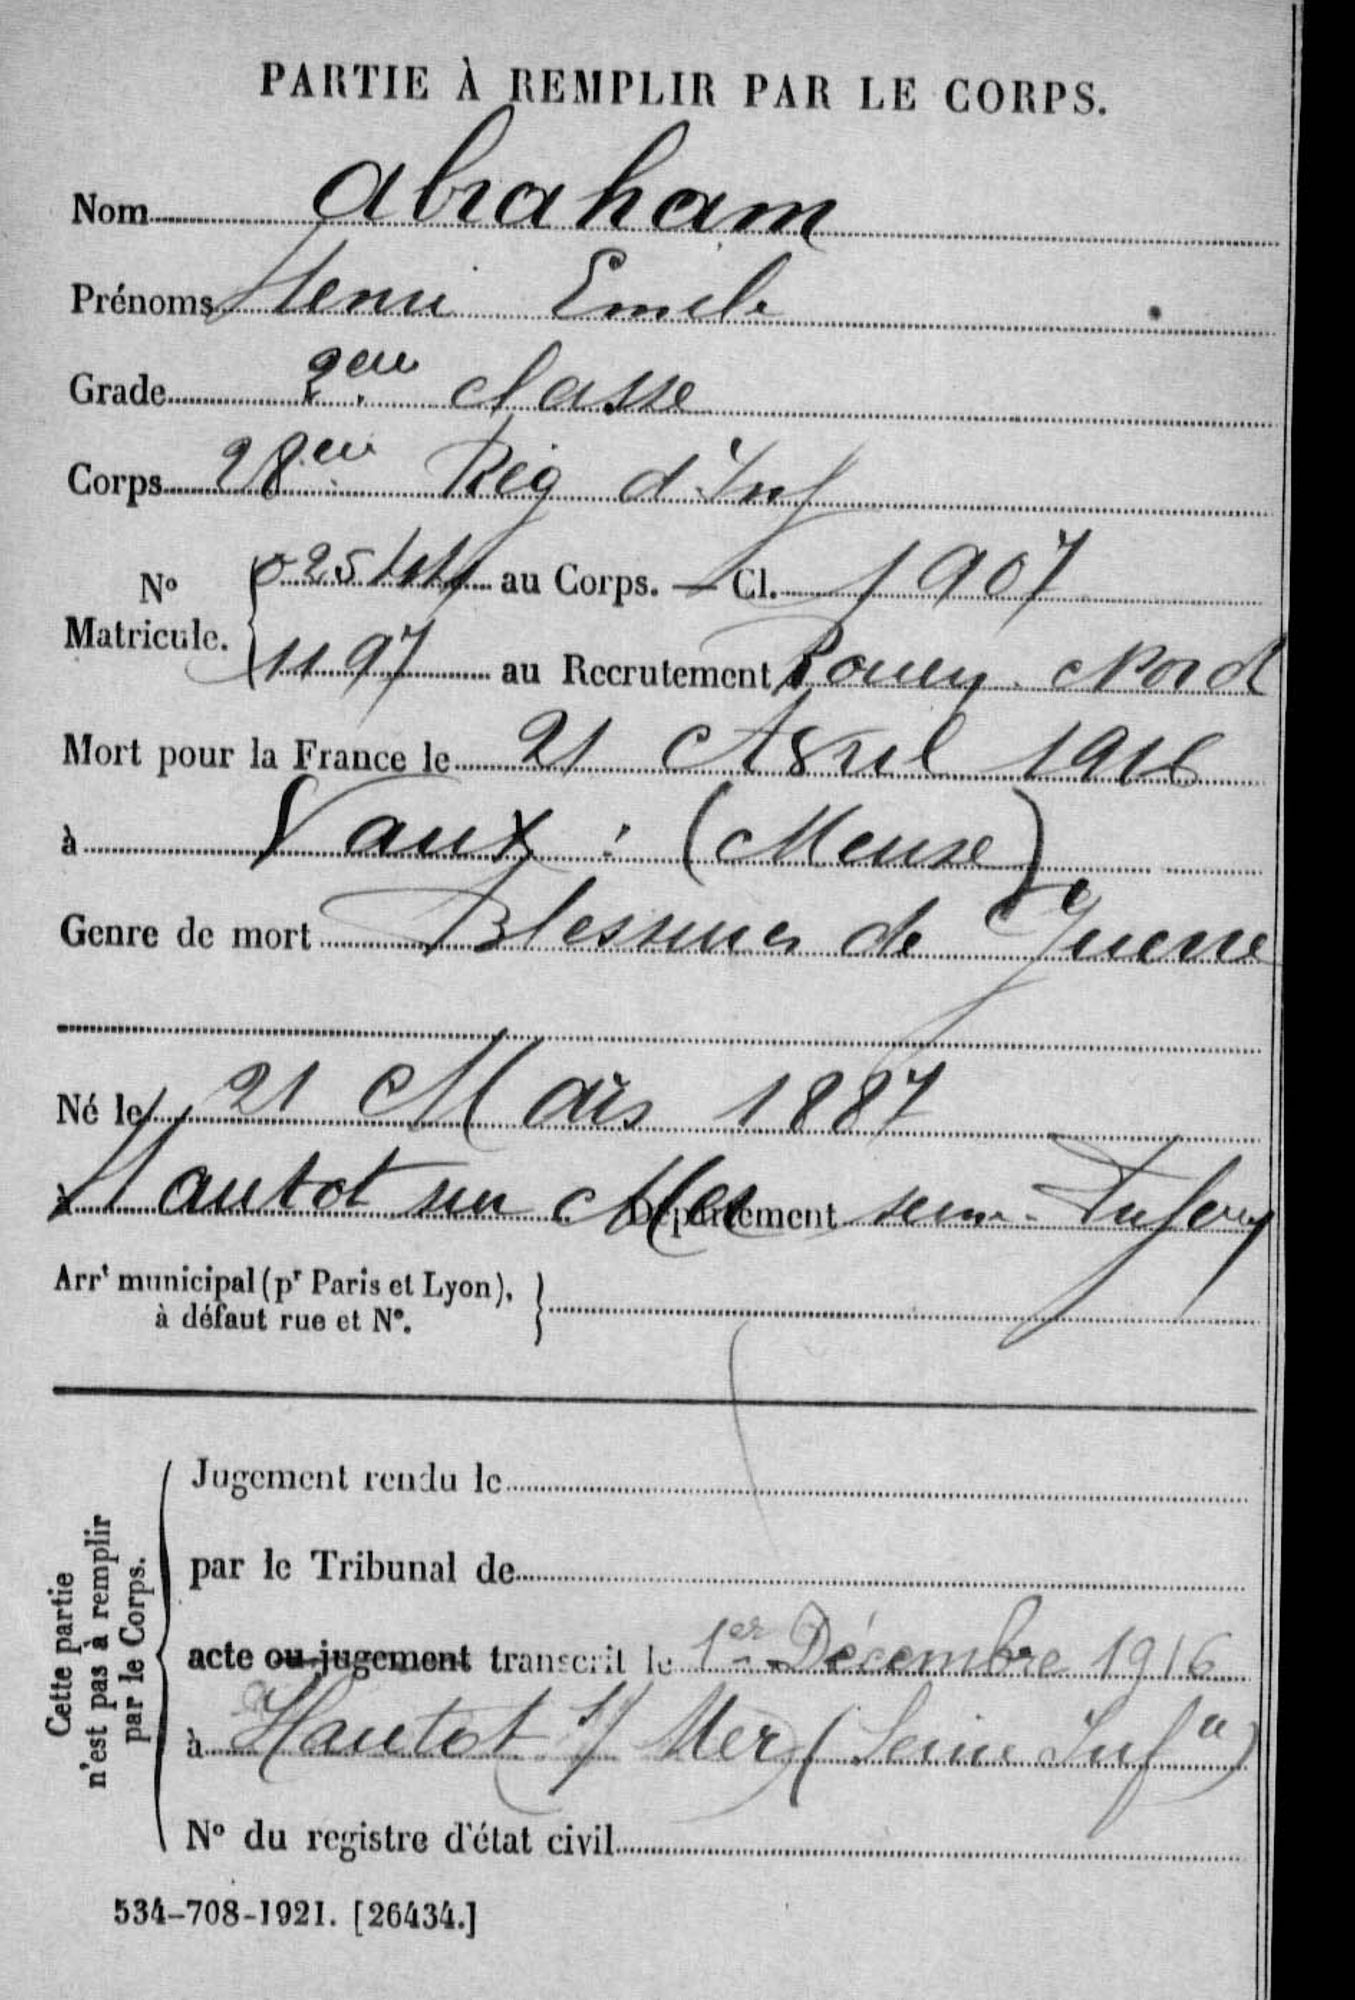 PARTIE À REMPLIR PAR LE CORPS.
Nom Abraham
Prénoms Henri Emile
Grade 2eme classe
Corps 28eme Rég d'Inf
N° Matricule. au Corps. — Cl. 1907
1197 au Recrutement Rouen Nord
Mort pour la France le 21 Avril 1916
à Vaux : (Meuse)
Genre de mort Blessures de Guerre
Né le 21 Mars 1887
à Hautot sur Mer Département seine-Infere
Arrt municipal (pr Paris et Lyon),
à défaut rue et N°.
Cette partie
n'est pas à remplir
par le Corps.
Jugement rendu le
par le Tribunal de
acte ou jugement transcrit le 1er Décembre 1916
à Hautot s/ Mer (Seine Infre)
N° du registre d'état civil
534-708-1921. [26434.]